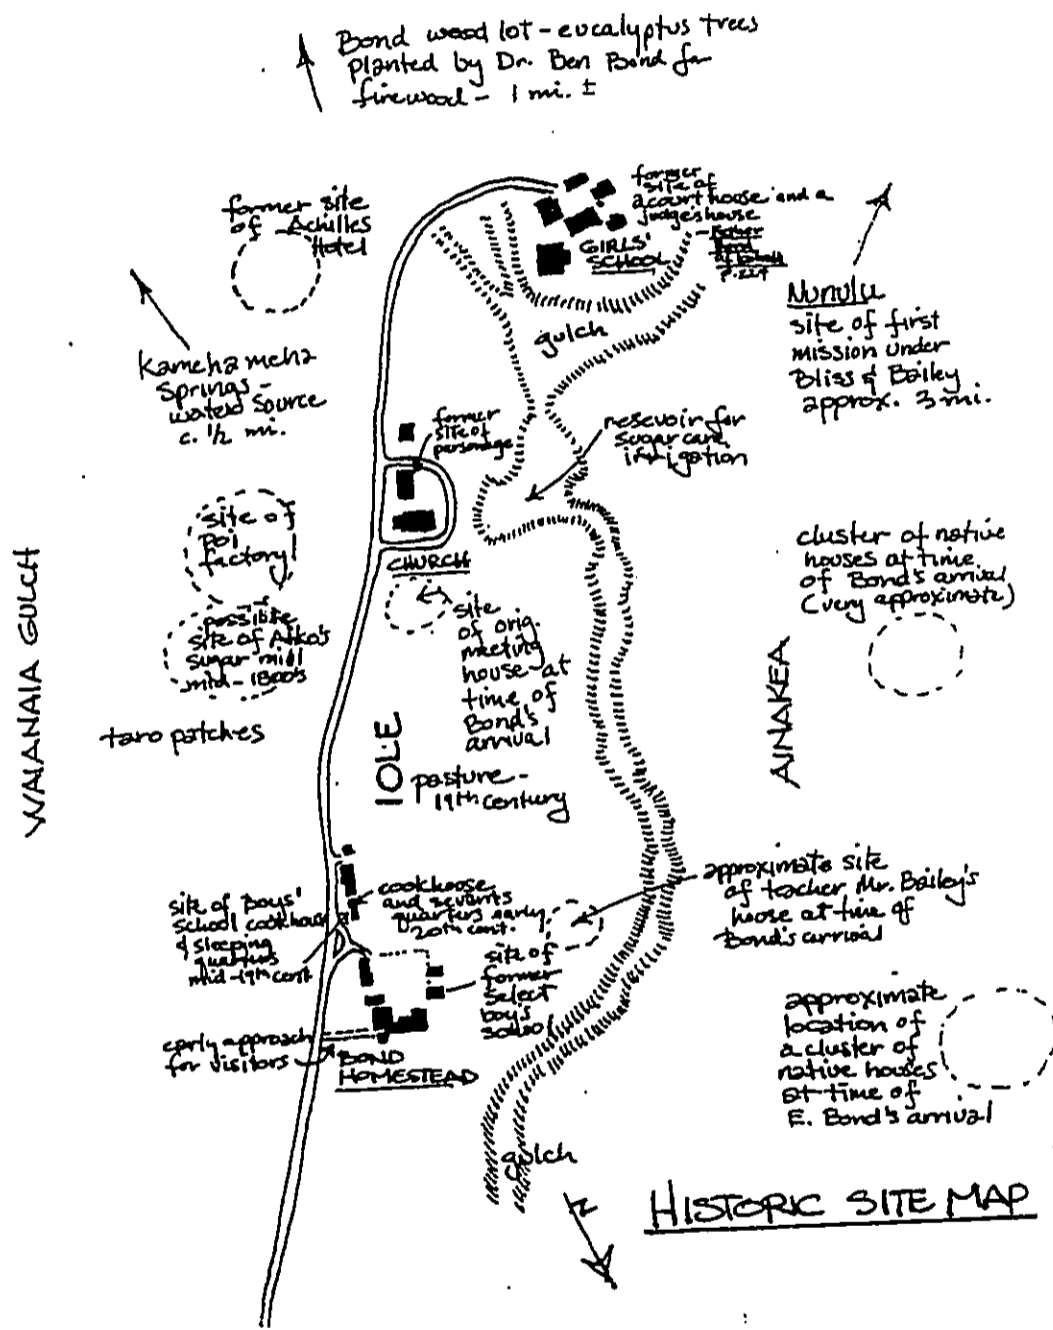 Bond wood lot - eucalyptus trees
planted by Dr. Ben Bond for
firewood - 1 mi. ±
former site
of Achilles
Hotel
former
site of
a court house and a
judge's house
GIRLS'
SCHOOL
p. 224
Nunulu
site of first
mission under
Bliss & Bailey
approx. 3 mi.
gulch
Kamehameha
Springs -
water source
c. 1/2 mi.
former
site of
parsonage
resevoir for
sugar cane
irrigation
site of
poi
factory
CHURCH
cluster of native
houses at time
of Bond's arrival
(very approximate)
possible
site of Aiko's
sugar mill
mid-1800's
site
of orig.
meeting
house at
time of
Bond's
arrival
WAIANAIA GULCH
taro patches
IOLE
AINAKEA
pasture -
19th century
site of Boys'
School cookhouse
& sleeping
quarters
mid-19th cent
cookhouse
and servents
quarters early
20th cent.
approximate site
of teacher Mr. Bailey's
house at time of
Bond's arrival
site of
former
select
boy's
school
early approach
for visitors
BOND
HOMESTEAD
approximate
location of
a cluster of
native houses
at time of
E. Bond's arrival
gulch
N
HISTORIC SITE MAP